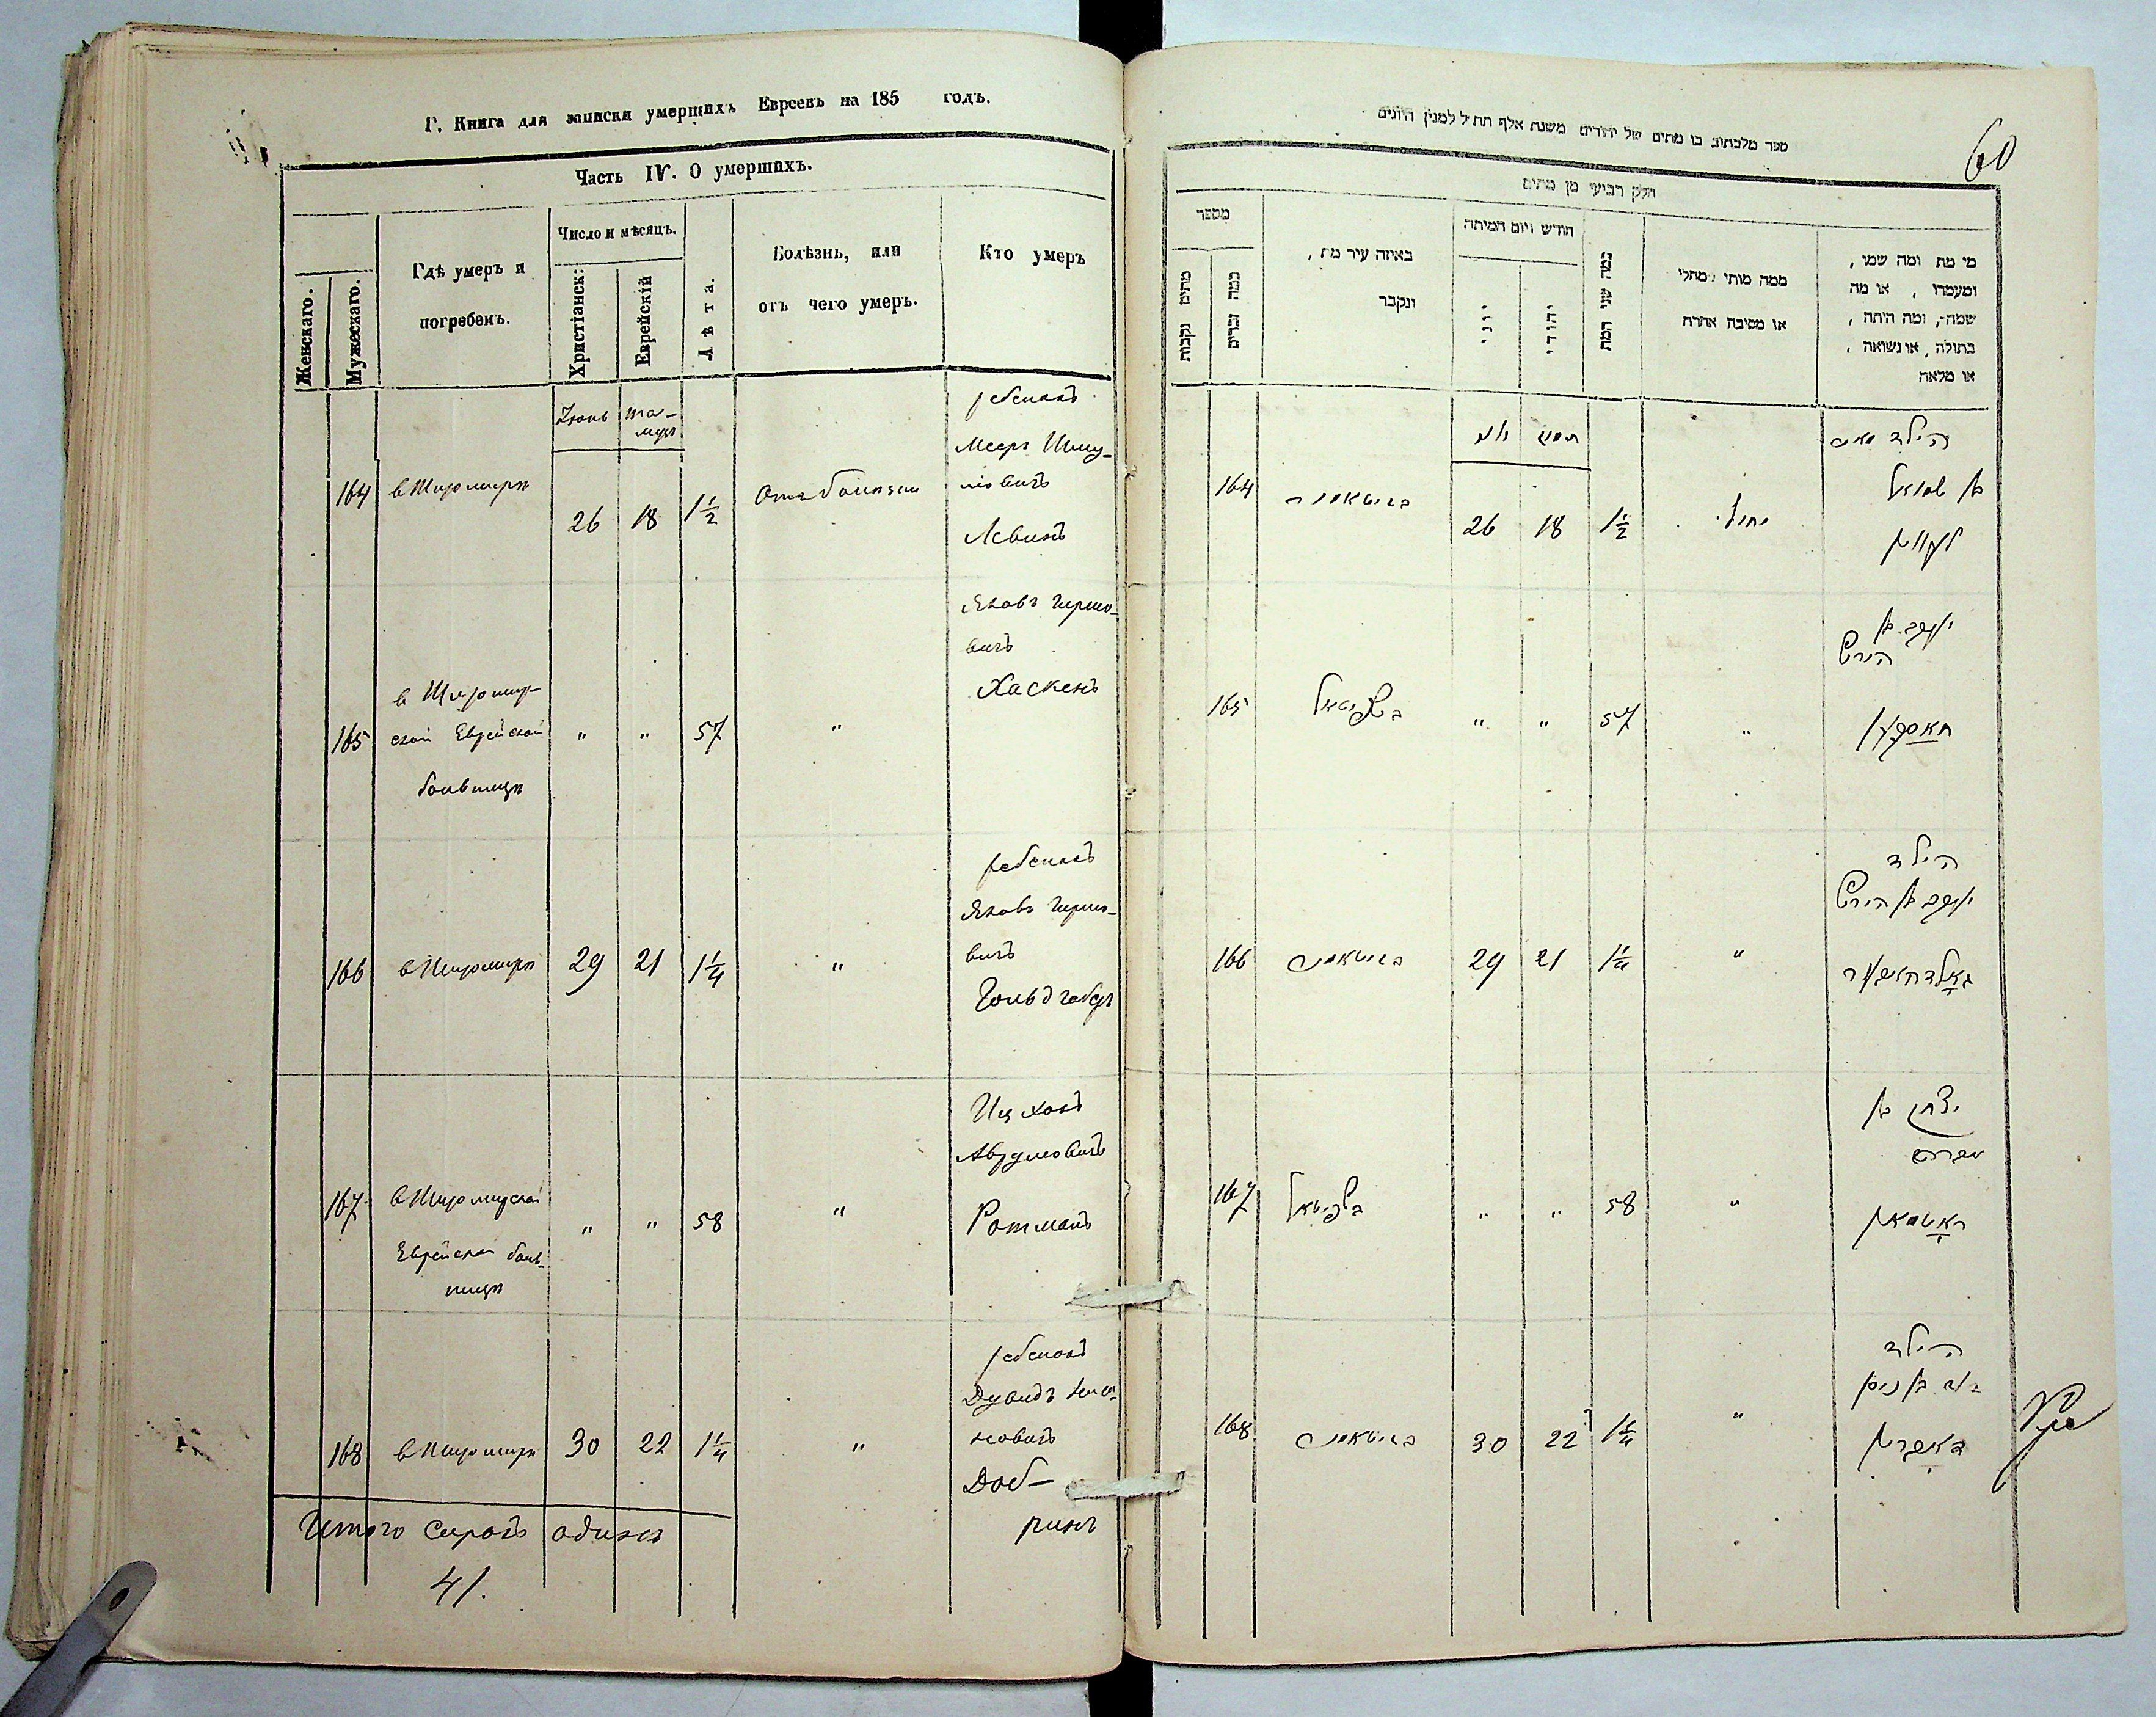 Г. Книга для записки умершихъ Евреевъ на 185 годъ.
Часть IV. О умершихъ.
Женскаго.
Мужескаго.
Гдѣ умеръ и
погребенъ.
Число и мѣсяцъ.
Христіанск:
Еврейскій
Лѣта.
Болѣзнь, или
отъ чего умеръ.
Кто умеръ
Іюнь
та-
музъ
164
в Житомирѣ
26
18
1½
Отъ болѣзни
ребенокъ
Мееръ Шму-
ліовичъ
Левинъ
165
в Житомир-
ской Еврейской
больницѣ
"
"
57
"
Яковъ Гершко-
вичъ
Хаскенъ
166
в Житомирѣ
29
21
1¼
"
ребенокъ
Яковъ Гершко-
вичъ
167
в Житомирской
Еврейской боль-
ницѣ
"
"
58
"
Ицхокъ
Абрумовичъ
Ротманъ
168
в Житомирѣ
30
22
1¼
"
ребенокъ
Дувидъ
новичъ
Доб-
ринъ
Итого сорокъ одинъ
41.
60
ספר מלכתוב בו מתים של יהודים משנת אלף תת למנין היונים
חלק רביעי מן מתים
מספר
מתים נקבות
כמה זכרים
באיזה עיר מת,
ונקבר
חודש ויום המיתה
יוני
יהודי
כמה שני המת
ממה מותי, מחלי
או מסיבה אחרת
מי מת ומה שמו,
ומעמדו, או מה
שמה, ומה היתה,
בתולה, או נשואה,
או מלאה
יוני
תמוז
164
בזיטאמיר
26
18
1½
הילד מאיר
בן שמואל
לעווין
165
בשפיטאל
"
"
57
"
יעקב בן
הירש
חאסקען
166
בזיטאמיר
29
21
1¼
"
הילד
יעקב בן הירש
167
בשפיטאל
"
"
58
"
יצחק בן
אברהם
ראטמאן
168
בזיטאמיר
30
22
1¼
"
הילד
דוד בן ניסן
דאברין